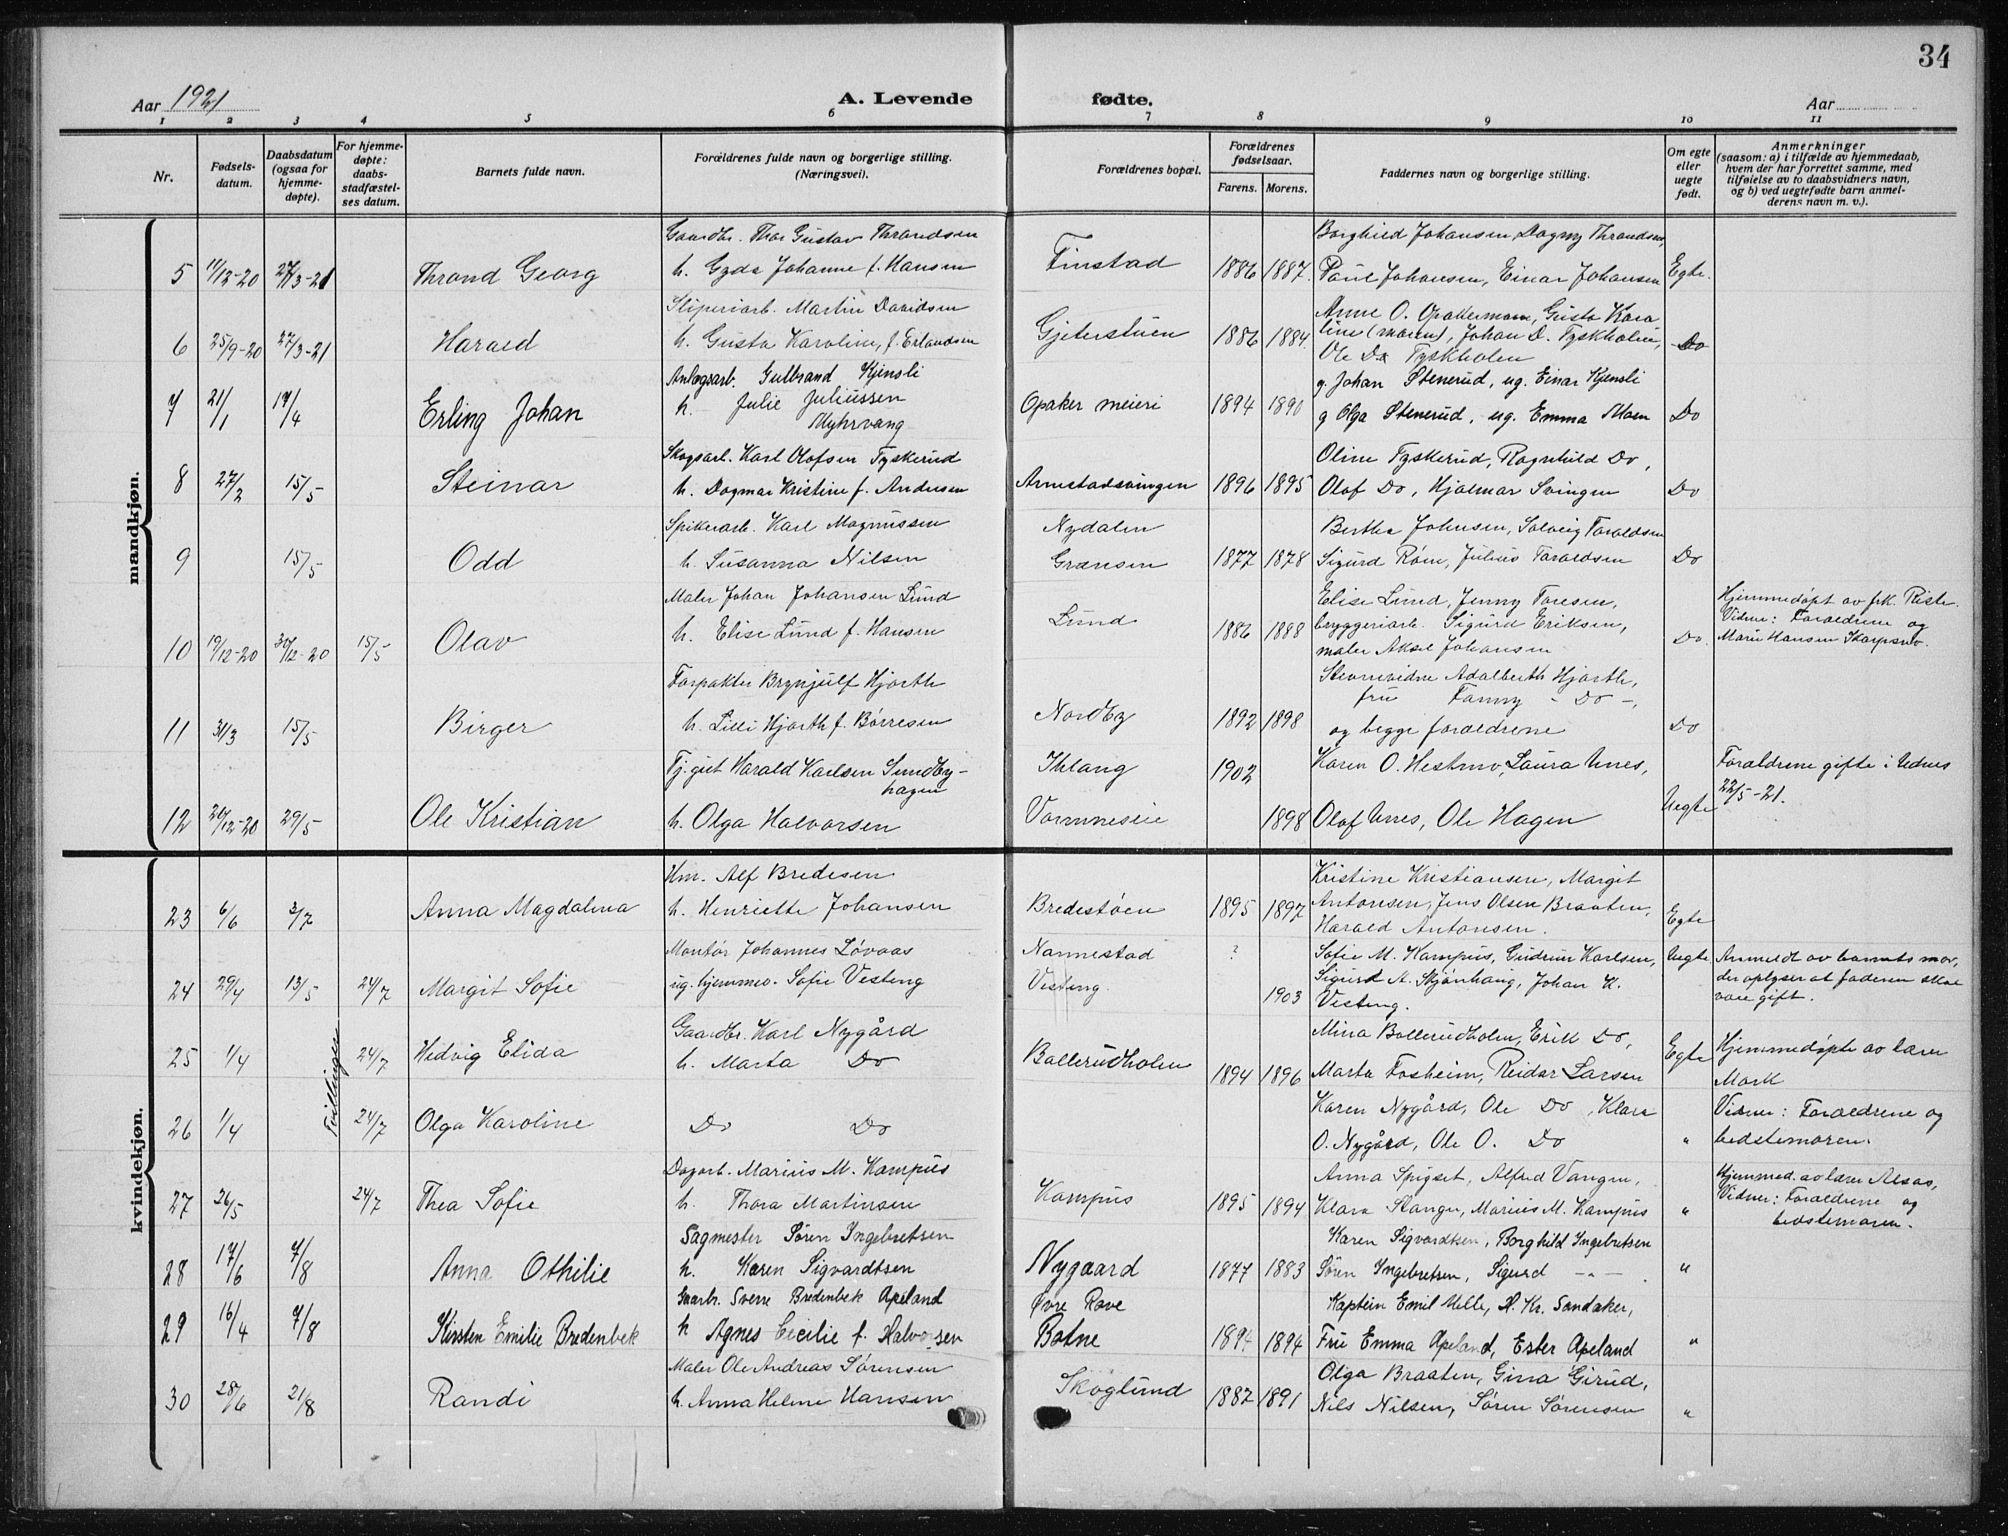 34
Aar 1921
A. Levende fødte.
Aar
1 2 3 4 5 6 7 8 9 10 11
Nr.
Fødsels-
datum.
Daabsdatum
(ogsaa for
hjemme-
døpte).
For hjemme-
døpte:
daabs-
stadfæstel-
ses datum.
Barnets fulde navn.
Forældrenes fulde navn og borgerlige stilling.
(Næringsvei).
Forældrenes bopæl.
Forældrenes
fødselsaar.
Farens. Morens.
Faddernes navn og borgerlige stilling.
Om egte
eller
uegte
født.
Anmerkninger
(saasom: a) i tilfælde av hjemmedaab,
hvem der har forrettet samme, med
tilføielse av to daabsvidners navn,
og b) ved uegtefødte barn anmel-
derens navn m. v.).
mandkjøn.
Gaardbr. Thor Gustav Throndsen Borghild Johansen, Dagny Throndsen,
5 11/12-20 27/3-21 Thrond Georg h. Gyda Johanne f. Hansen Finstad 1886 1887 Paul Johansen, Einar Johansen Egte.
Sliperiarb. Martin Davidsen Anne O. Opakermoen, Gusta Karo
6 25/9-20 27/3-21 Harald h. Gusta Karoline, f. Erlandsen Gjeterstuen 1886 1884 line (moren), Johan D. Tyskholen, Do
Ole Do Tyskholen
Anlægsarb. Gulbrand Kjensli g. Johan Stenerud, ug. Einar Kjensli
7 21/1 17/4 Erling Johan h. Julie Juliussen Opaker meieri 1894 1890 g Olga Stenerud, ug. Emma Moen Do
Myhrvang
Skogsarb. Karl Olofsen Tyskerud Oline Tyskerud, Ragnhild Do,
8 27/2 15/5 Steinar h. Dagmar Kristine f. Andresen Arnestadsvingen 1896 1895 Olof Do, Hjalmar Svingen Do
Spikerarb. Karl Magnussen Nydalen Berthe Johnsen, Solveig Taraldsen
9 15/5 Odd h. Susanna Nilsen Grænsen 1877 1878 Sigurd Røen, Julius Taraldsen Do
Maler Johan Johansen Lund Elise Lund, Jenny Toresen, Hjemmedøpt av frk. Riste.
10 19/12-20 30/12-20 15/5 Olav h. Elise Lund f. Hansen Lund 1886 1888 bryggeriarb. Sigurd Eriksen, Do. Vidner: Forældrene og
maler Aksel Johansen Marie Hansen Skarpsno.
Forpakter Brynjulf Hjorth Stevnevidne Adalberth Hjorth,
fru Fanny - Do -,
11 31/3 15/5 Birger h. Lilli Hjorth f. Børresen Nordby 1892 1898 og begge forældrene Do
Tj.gut Harald Karlsen Sundby-
hagen Ihlang 1902 Karen O. Hestmo, Laura Unes, Forældrene gifte i Udnes
22/5-21.
12 20/12-20 29/5 Ole Kristian h. Olga Halvorsen Vormneseie 1898 Olaf Unes, Ole Hagen Uegte
kvindekjøn.
Hm. Alf Bredesen Kristine Kristiansen, Margit
23 6/6 3/7 Anna Magdalena h. Henriette Johansen Bredestøen 1895 1897 Antonsen, Jens Olsen Braaten, Egte
Harald Antonsen.
Montør Johannes Løvaas Nannestad ? Sofie M. Kampus, Gudrun Karlsen, Uegte Anmeldt av barnets mor,
24 29/4 13/5 24/7 Margit Sofie ug. hjemmev. Sofie Vesteng Vesteng. 1903 Sigurd A. Skjønhaug, Johan K. der oplyser at faderen skal
Vesteng. være gift.
Gaardbr. Karl Nygård Mina Bollerudholen, Erik Do,
25 1/4 24/7 Hedvig Elida h. Marta Do Bollerudholen 1894 1896 Marta Fosheim, Reidar Larsen Egte Hjemmedøpte av lærer
Mork
Tvillinger
26 1/4 24/7 Olga Karoline Do Do Karen Nygård, Ole Do, Klara Vidner: Forældrene og
O. Nygård, Ole O. Do " bedstemoren.
Dagarb. Marius M. Kampus Anna Spigset, Alfred Vangen, Hjemmed. av lærer Alsos,
27 26/5 24/7 Thea Sofie h. Thora Martinsen Kampus 1895 1894 Klara Stange, Marius M. Kampus " Vidner: Forældrene og
bedstemoren.
Sagmester Søren Ingebretsen Karen Sigvardtsen, Borghild Ingebretsen
28 17/6 7/8 Anna Othilie h. Karen Sigvardtsen Nygaard 1877 1883 Søren Ingebretsen, Sigurd - " - "
Gaarbr. Sverre Bredenbek Apeland Øvre Rove Kaptein Emil Melle, A. Kr. Sandaker,
29 16/4 7/8 Kirsten Emilie Bredenbek h Agnes Cecilie f. Halvorsen Botne 1894 1894 Fru Emma Apeland, Ester Apeland "
Maler Ole Andreas Sørensen Olga Braaten, Gina Girud,
30 28/6 21/8 Randi h. Anna Helene Hansen Skoglund 1882 1891 Nils Nilsen, Søren Sørensen "